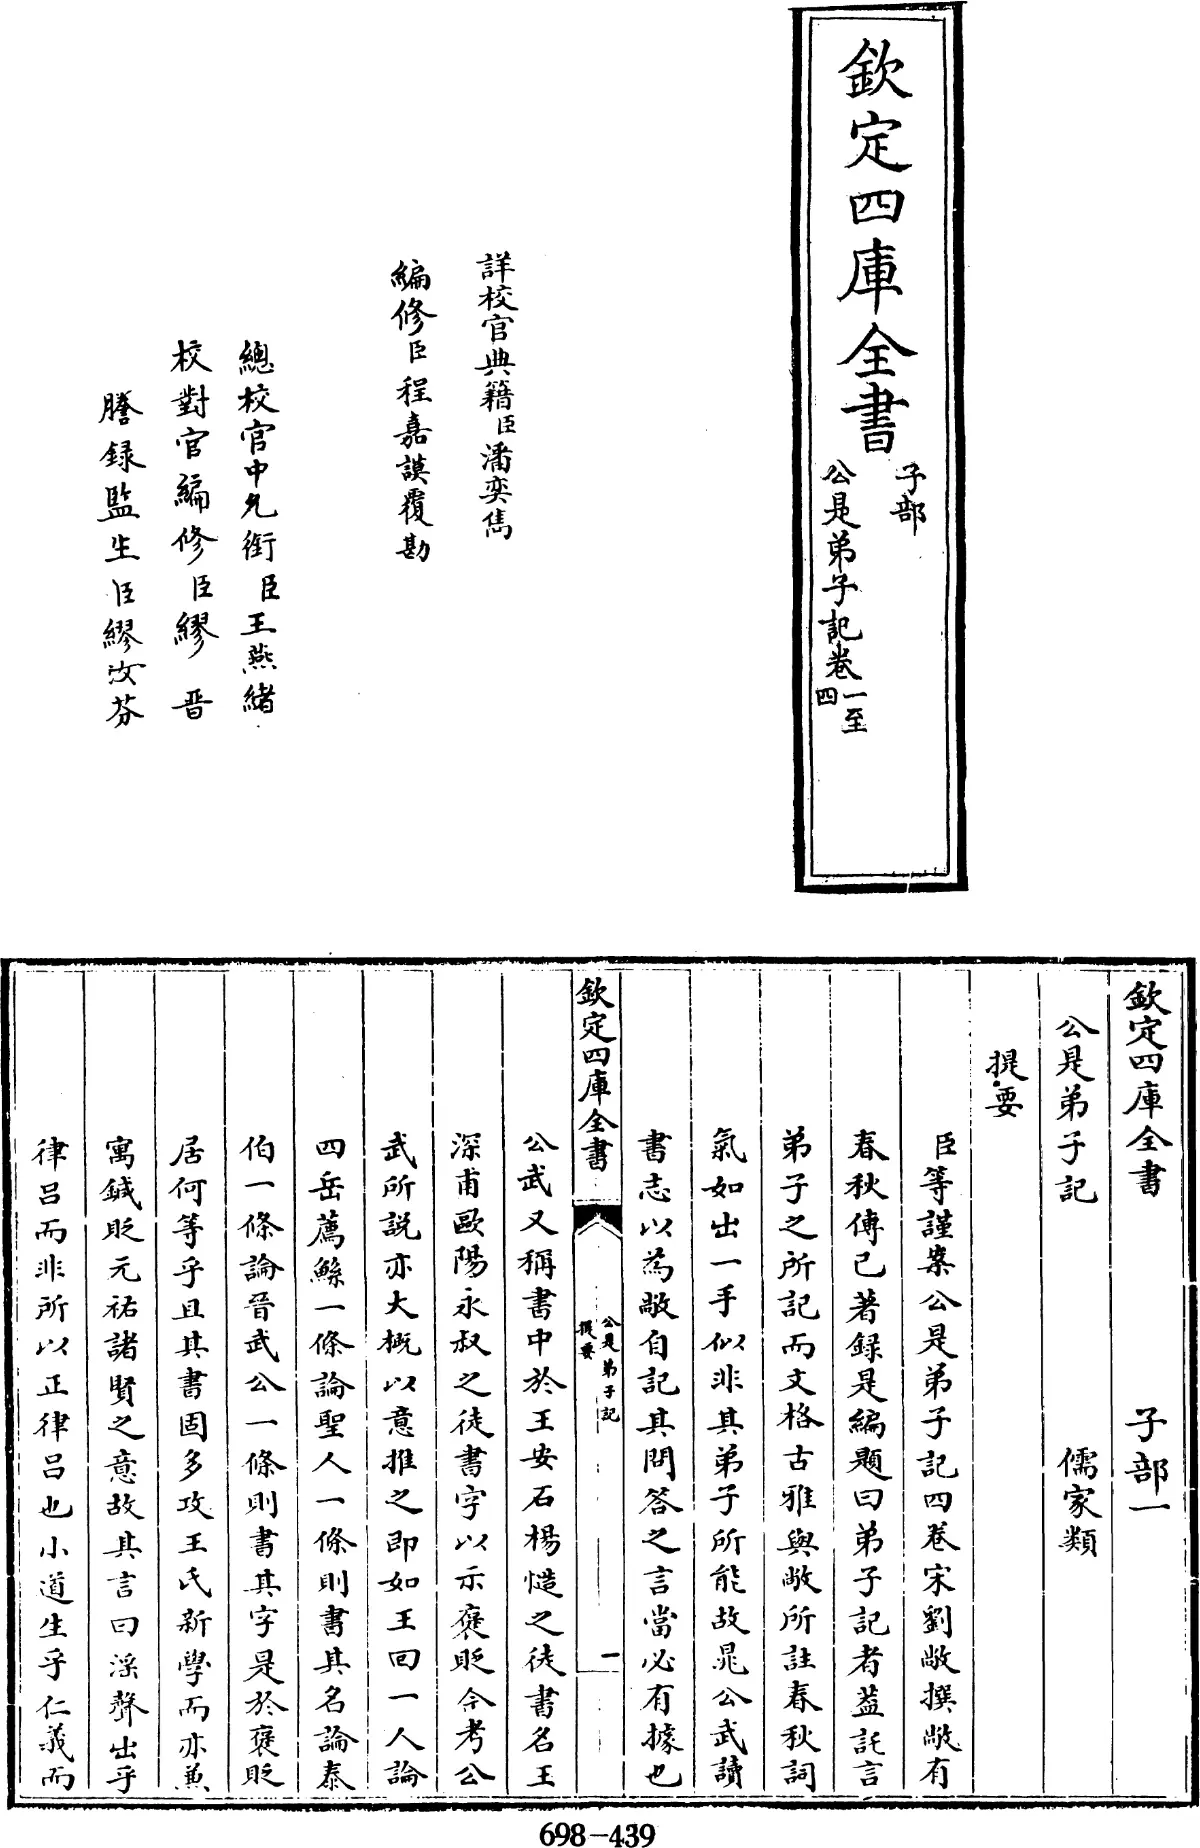 欽定四庫全書
子部
公是弟子記卷一至四
詳校官典籍臣潘奕雋
編修臣程嘉謨覆勘
總校官中允銜臣王燕緒
校對官編修臣繆晋
謄録監生臣繆汝芬
欽定四庫全書 子部一
公是弟子記 儒家類
提要
臣等謹案公是弟子記四卷宋劉敞撰敞有
春秋傳已著録是編題曰弟子記者葢託言
弟子之所記而文格古雅與敞所註春秋詞
氣如出一手似非其弟子所能故晁公武讀
書志以為敞自記其問答之言當必有據也
欽定四庫全書
公是弟子記
提要
一
公武又稱書中於王安石楊慥之徒書名王
深甫歐陽永叔之徒書字以示褒貶今考公
武所説亦大概以意推之即如王回一人論
四岳薦鯀一條論聖人一條則書其名論泰
伯一條論晉武公一條則書其字是於褒貶
居何等乎且其書固多攻王氏新學而亦兼
寓鍼貶元祐諸賢之意故其言曰淫聲出乎
律呂而非所以正律呂也小道生乎仁義而
698-439